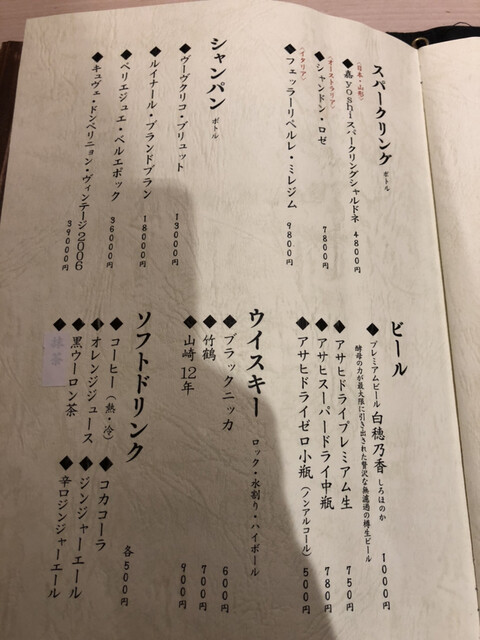 スパークリング ボトル
〈日本・山形〉
◆嘉yoshiスパークリングシャルドネ 4800円
〈オーストラリア〉
◆シャンドン・ロゼ 7800円
〈イタリア〉
◆フェッラーリペルレ・ミレジム 9800円
シャンパン ボトル
◆ヴーヴクリコ・ブリュット 13000円
◆ルイナール・ブランドブラン 18000円
◆ベリエジュエ・ベルエポック 36000円
◆キュヴェ・ドンペリニョン・ヴィンテージ2006 39000円
ビール
◆プレミアムビール 白穂乃香 しろほのか 1000円
酵母の力が最大限に引き出された贅沢な無濾過の樽生ビール
◆アサヒドライプレミアム生 750円
◆アサヒスーパードライ中瓶 780円
◆アサヒドライゼロ小瓶(ノンアルコール) 500円
ウイスキー ロック・水割り・ハイボール
◆ブラックニッカ 600円
◆竹鶴 700円
◆山崎12年 900円
ソフトドリンク 各500円
◆コーヒー(熱・冷) ◆コカコーラ
◆オレンジジュース ◆ジンジャーエール
◆黒ウーロン茶 ◆辛口ジンジャーエール
◆抹茶